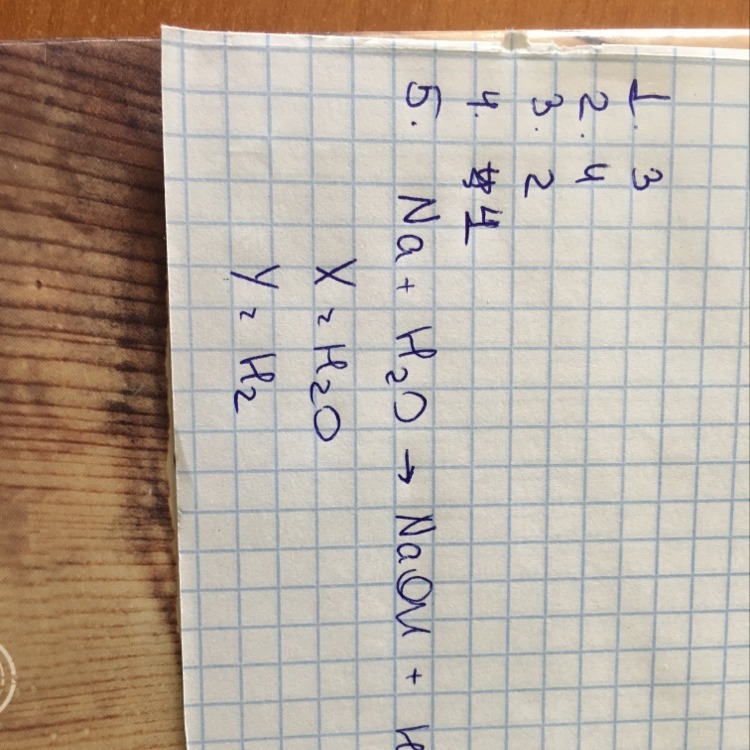 1. 3
2. 4
3. 2
4. 1
5. Na + H₂O → NaOH +
X = H₂O
Y = H₂